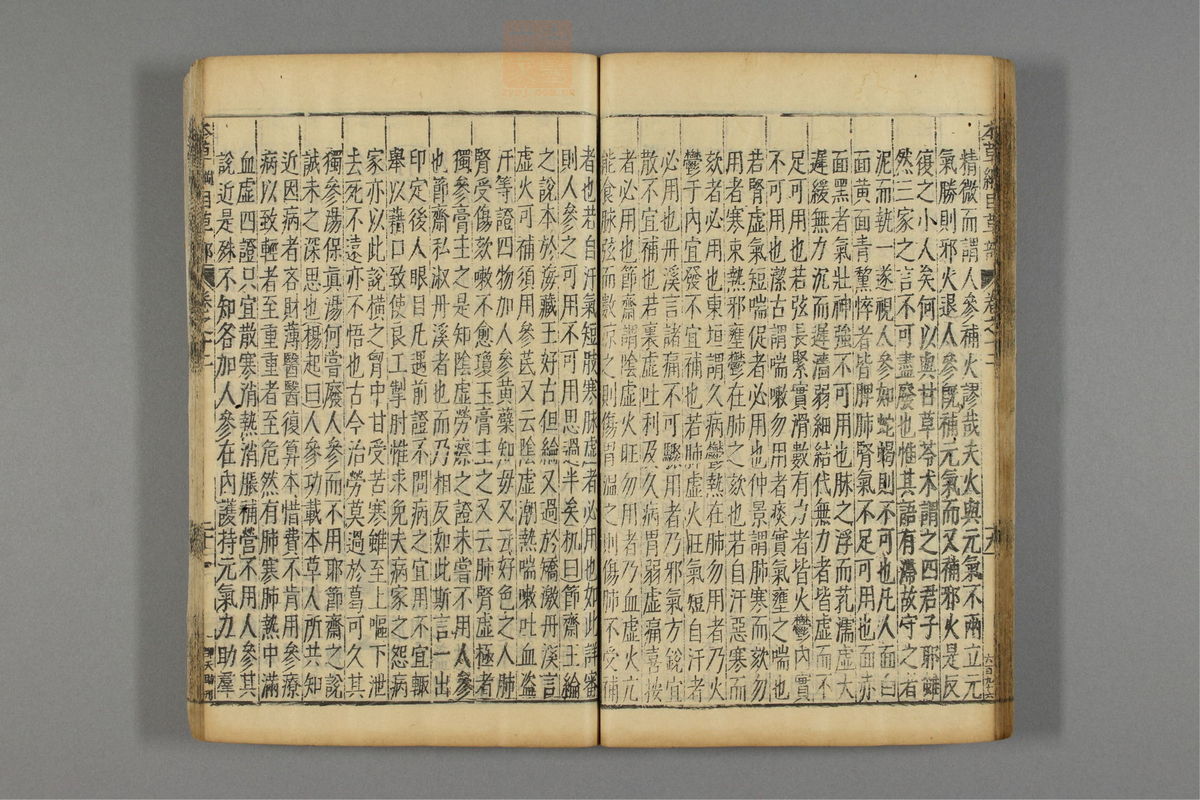 本草綱目草部 卷之十二 十九
精微而謂人參補火謬哉夫火與元氣不兩立元
氣勝則邪火退人參既補元氣而又補邪火是反
復之小人矣何以與甘草苓术謂之四君子耶雖
然三家之言不可盡廢也惟其語有滯故守之者
泥而執一遂視人參如蛇蝎則不可也凡人面白
面黃面青黧悴者皆脾肺腎氣不足可用也面赤
面黑者氣壯神強不可用也脉之浮而芤濡虛大
遲緩無力沉而遲濇弱細結代無力者皆虛而不
足可用也若弦長緊實滑數有力者皆火鬱內實
不可用也潔古謂喘嗽勿用者痰實氣壅之喘也
若腎虛氣短喘促者必用也仲景謂肺寒而欬勿
用者寒束熱邪壅鬱在肺之欬也若自汗惡寒而
欬者必用也東垣謂久病鬱熱在肺勿用者乃火
鬱于內宜發不宜補也若肺虛火旺氣短自汗者
必用也丹溪言諸痛不可驟用者乃邪氣方銳宜
散不宜補也若裏虛吐利及久病胃弱虛痛喜按
者必用也節齋謂陰虛火旺勿用者乃血虛火亢
能食脉弦而數凉之則傷胃溫之則傷肺不受補
者也若自汗氣短肢寒脉虛者必用也如此詳審
則人參之可用不可用思過半矣机曰節齋王綸
之說本於海藏王好古但綸又過於矯激丹溪言
虛火可補須用參芪又云陰虛潮熱喘嗽吐血盜
汗等證四物加人參黃蘗知毋又云好色之人肺
腎受傷欬嗽不愈瓊玉膏主之又云肺腎虛極者
獨參膏主之是知陰虛勞瘵之證未嘗不用人參
也節齋私淑丹溪者也而乃相反如此斯言一出
印定後人眼目凡遇前證不問病之宜用不宜輒
舉以藉口致使良工掣肘惟求免夫病家之怨病
家亦以此說橫之胷中甘受苦寒雖至上嘔下泄
去死不遠亦不悟也古今治勞莫過於葛可久其
獨參湯保真湯何嘗廢人參而不用耶節齋之說
誠未之深思也楊起曰人參功載本草人所共知
近因病者吝財薄醫醫復算本惜費不肯用參療
病以致輕者至重重者至危然有肺寒肺熱中滿
血虛四證只宜散寒消熱消脹補營不用人參其
說近是殊不知各加人參在內護持元氣力助羣
本草綱目草部 卷之十二 二十